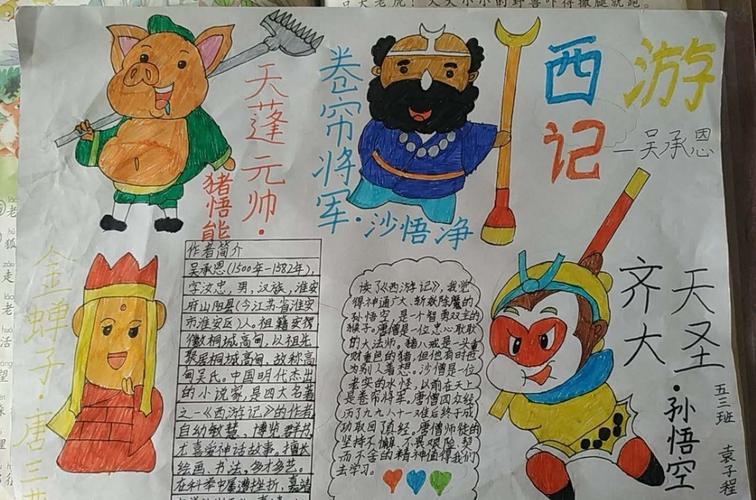 天蓬元帅·
猪悟能
卷帘将军·沙悟净
西游记
—吴承恩
金蝉子·唐三
作者简介
吴承恩(1500年-1582年),
字汝忠,男,汉族,淮安
府山阳县(今江苏省淮安
市淮安区)人。祖籍安
徽桐城高甸,以祖先
聚居桐城高甸,故称高
甸吴氏。中国明代杰出
的小说家,是四大名著
之一《西游记》的作者
自幼敏慧,博览群书
尤喜爱神话故事。擅长
绘画、书法,多才多艺。
在科举中屡遭挫折,嘉靖
读了《西游记》,我觉
得神通广大、斩妖除魔的
孙悟空,是个智勇双全的
猴子。唐僧是一位忠心取取
的大法师。猪八戒是一头重
财重色的猪,但他有时也
为别人着想。沙僧是一位
老实的水怪,以前在天上
是卷帘将军,唐僧四众经
历了九九八十一难后终于成
功取回了真经。唐僧师徒的
坚持不懈、不畏艰险、契
而不舍的精神值得我们
去学习。
齐天大圣·孙悟空
五三班
袁子程